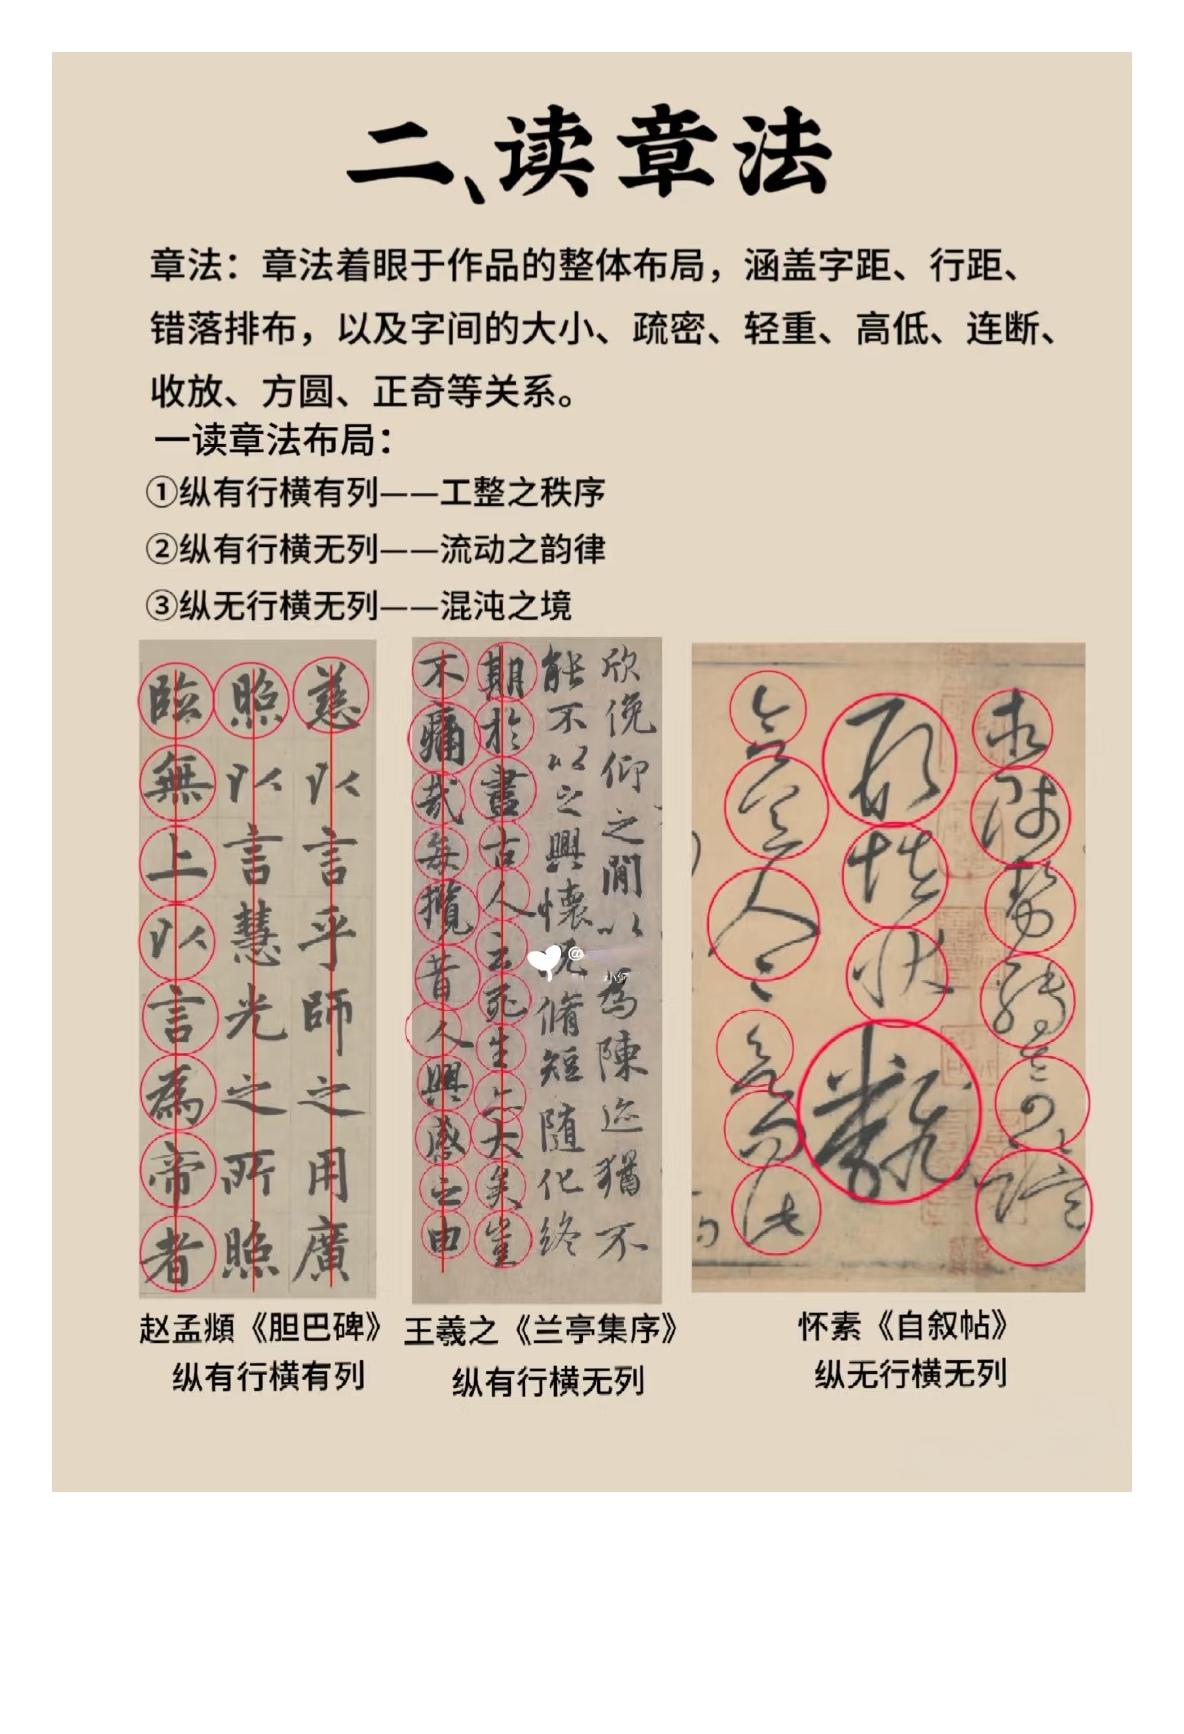 二、读章法
章法：章法着眼于作品的整体布局，涵盖字距、行距、
错落排布，以及字间的大小、疏密、轻重、高低、连断、
收放、方圆、正奇等关系。
一读章法布局：
①纵有行横有列——工整之秩序
②纵有行横无列——流动之韵律
③纵无行横无列——混沌之境
慈以言乎師之用廣
照以言慧光之所照
臨無上以言為帝者
欣俛仰之閒以為陳迹猶不
能不以之興懷況脩短随化終
期於盡古人云死生亦大矣豈
不痛哉每攬昔人興感之由
赵孟頫《胆巴碑》
纵有行横有列
王羲之《兰亭集序》
纵有行横无列
怀素《自叙帖》
纵无行横无列